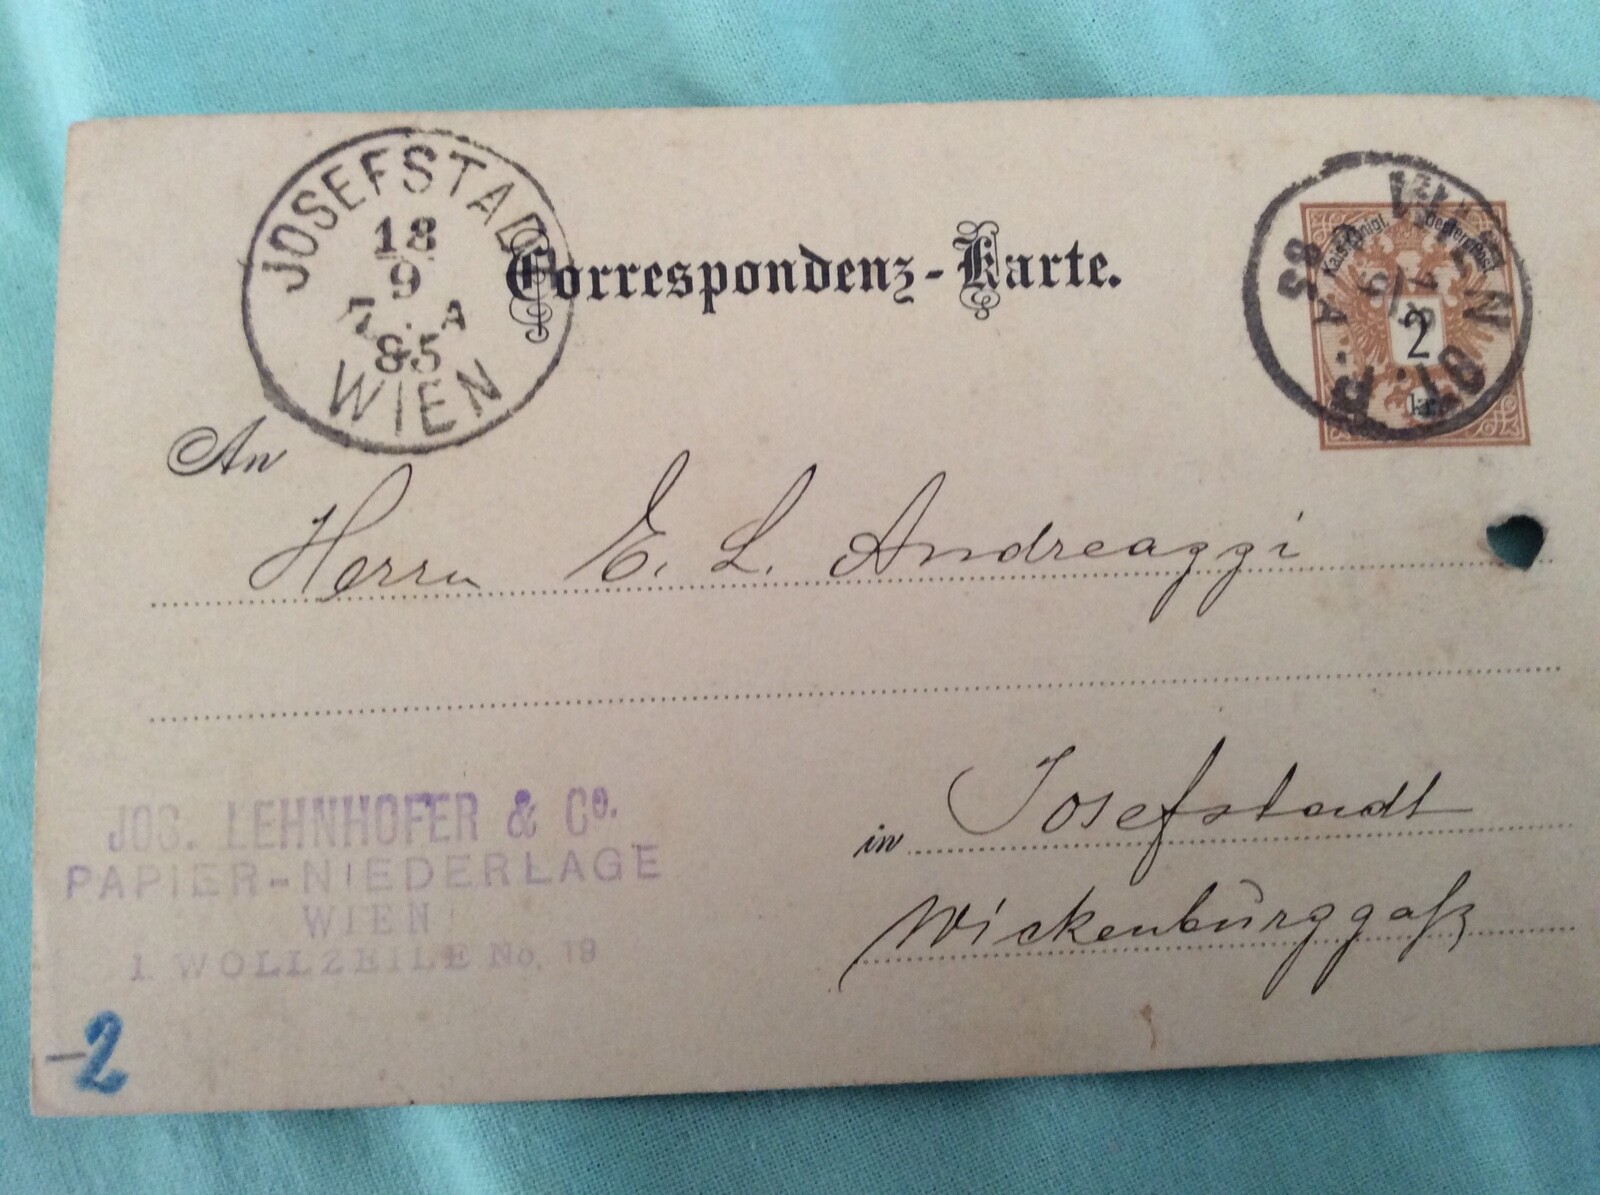 JOSEFSTADT
18
9
7. A
85
WIEN
Correspondenz-Karte.
Kais. Königl. Oesterr. Post
2
kr.
WIEN
85
An
Herrn E. L. Andreazzi
in Josefstadt
Wickenburggaße
JOS. LEHNHOFER & Co.
PAPIER-NIEDERLAGE
WIEN
I. WOLLZEILE No. 19
-2